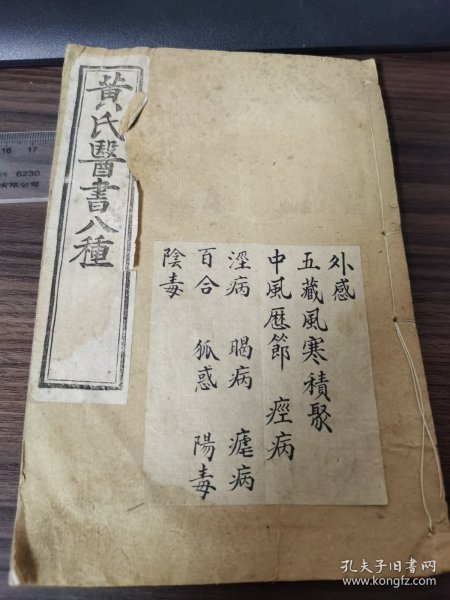 黃氏醫書八種
外感
五藏風寒積聚
中風厯節 痙病
溼病 暍病 瘧病
百合 狐惑 陽毒
陰毒
16 17
6230
有限公司
孔夫子旧书网
www.kongfz.com